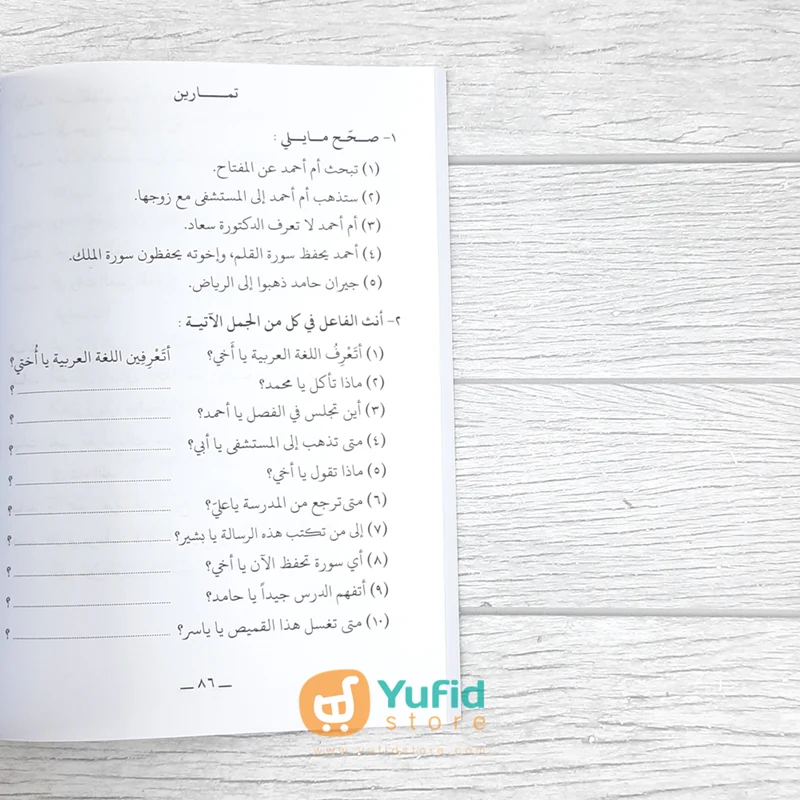 تمـــــاريـن
١- صـحّـح مـايـلي :
(١) تبحث أم أحمد عن المفتاح.
(٢) ستذهب أم أحمد إلى المستشفى مع زوجها.
(٣) أم أحمد لا تعرف الدكتورة سعاد.
(٤) أحمد يحفظ سورة القلم، وإخوته يحفظون سورة الملك.
(٥) جيران حامد ذهبوا إلى الرياض.
٢- أنث الفاعل في كل من الجمل الآتيـة :
(١) أتَعْرِفُ اللغة العربية يا أَخي؟ أتَعْرِفِين اللغة العربية يا أُختي؟
(٢) ماذا تأكل يا محمد؟ ؟
(٣) أين تجلس في الفصل يا أحمد؟ ؟
(٤) متى تذهب إلى المستشفى يا أبي؟ ؟
(٥) ماذا تقول يا أخي؟ ؟
(٦) متى ترجع من المدرسة ياعليّ؟ ؟
(٧) إلى من تكتب هذه الرسالة يا بشير؟ ؟
(٨) أي سورة تحفظ الآن يا أخي؟ ؟
(٩) أتفهم الدرس جيداً يا حامد؟ ؟
(١٠) متى تغسل هذا القميص يا ياسر؟ ؟
— ٨٦ —
Yufid
store
www.yufidstore.com